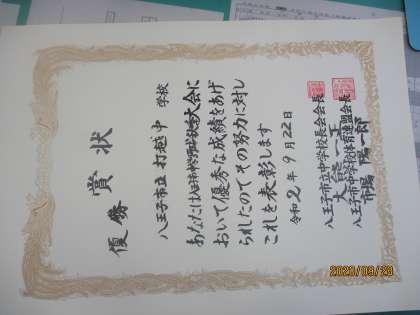 賞状
優勝
八王子市立 打越中 学校
あなたは八王子市中学校
大会に
おいて優秀な成績をあげ
られたのでその努力に対し
これを表彰します
令和2年9月22日
八王子市立中学校長会会長
八王子市中学校体育連盟会長
市場 陽一郎
2020/09/28